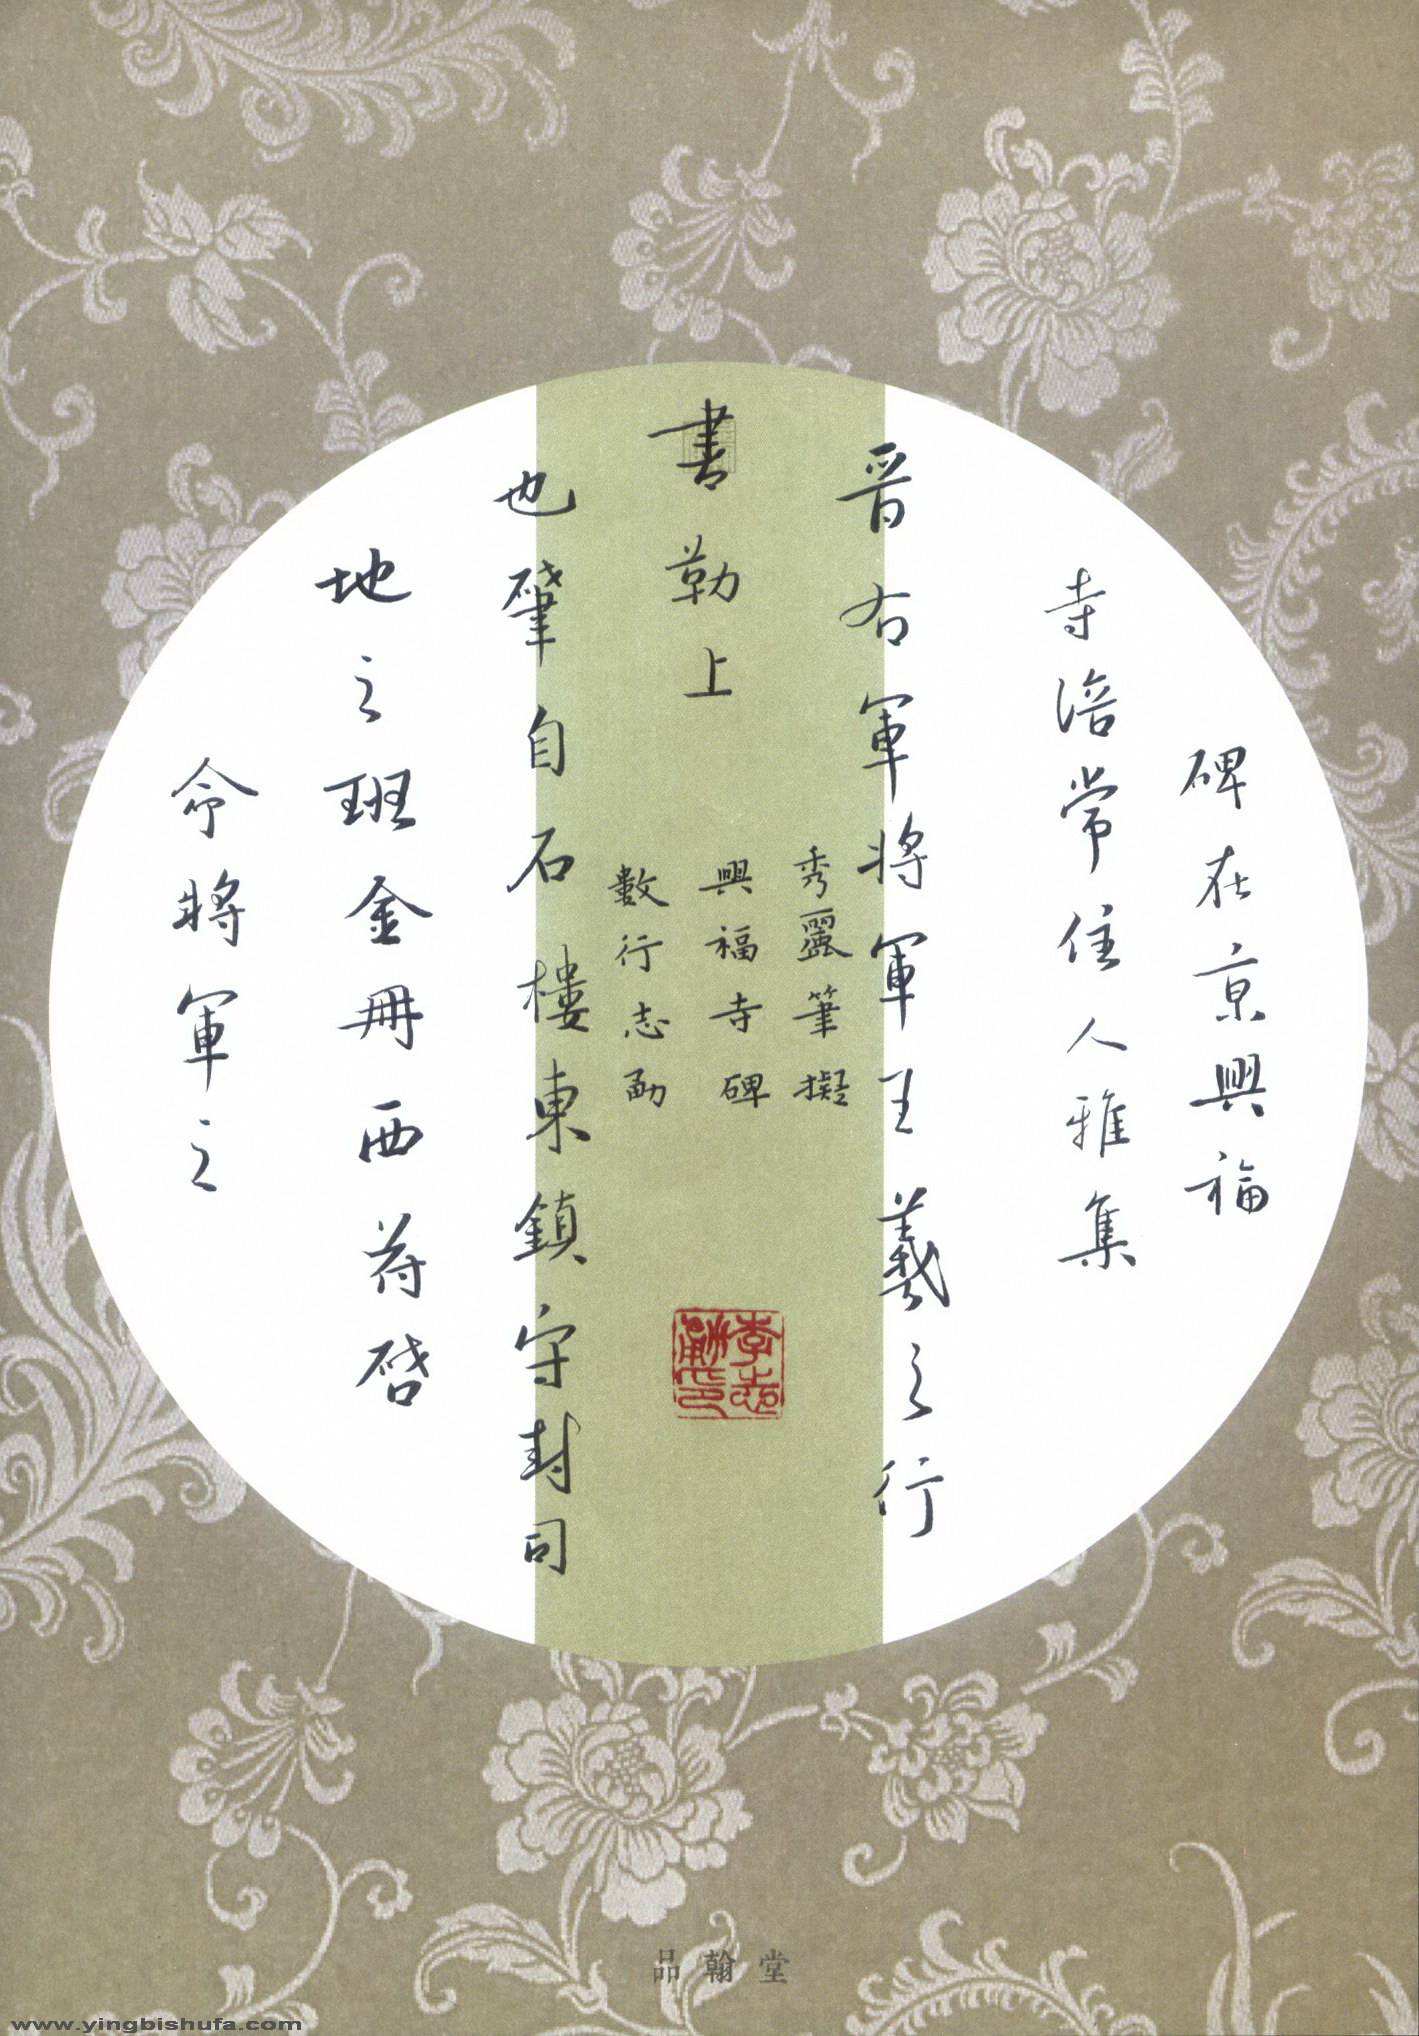 碑在京興福
寺涪常住人雅集
晉右軍將軍王羲之行
書勒上
秀麗筆擬
興福寺碑
數行志勇
也肇自石樓東鎮守封司
地之班金冊西符啓
命將軍之
李志勇印
品翰堂
www.yingbishufa.com